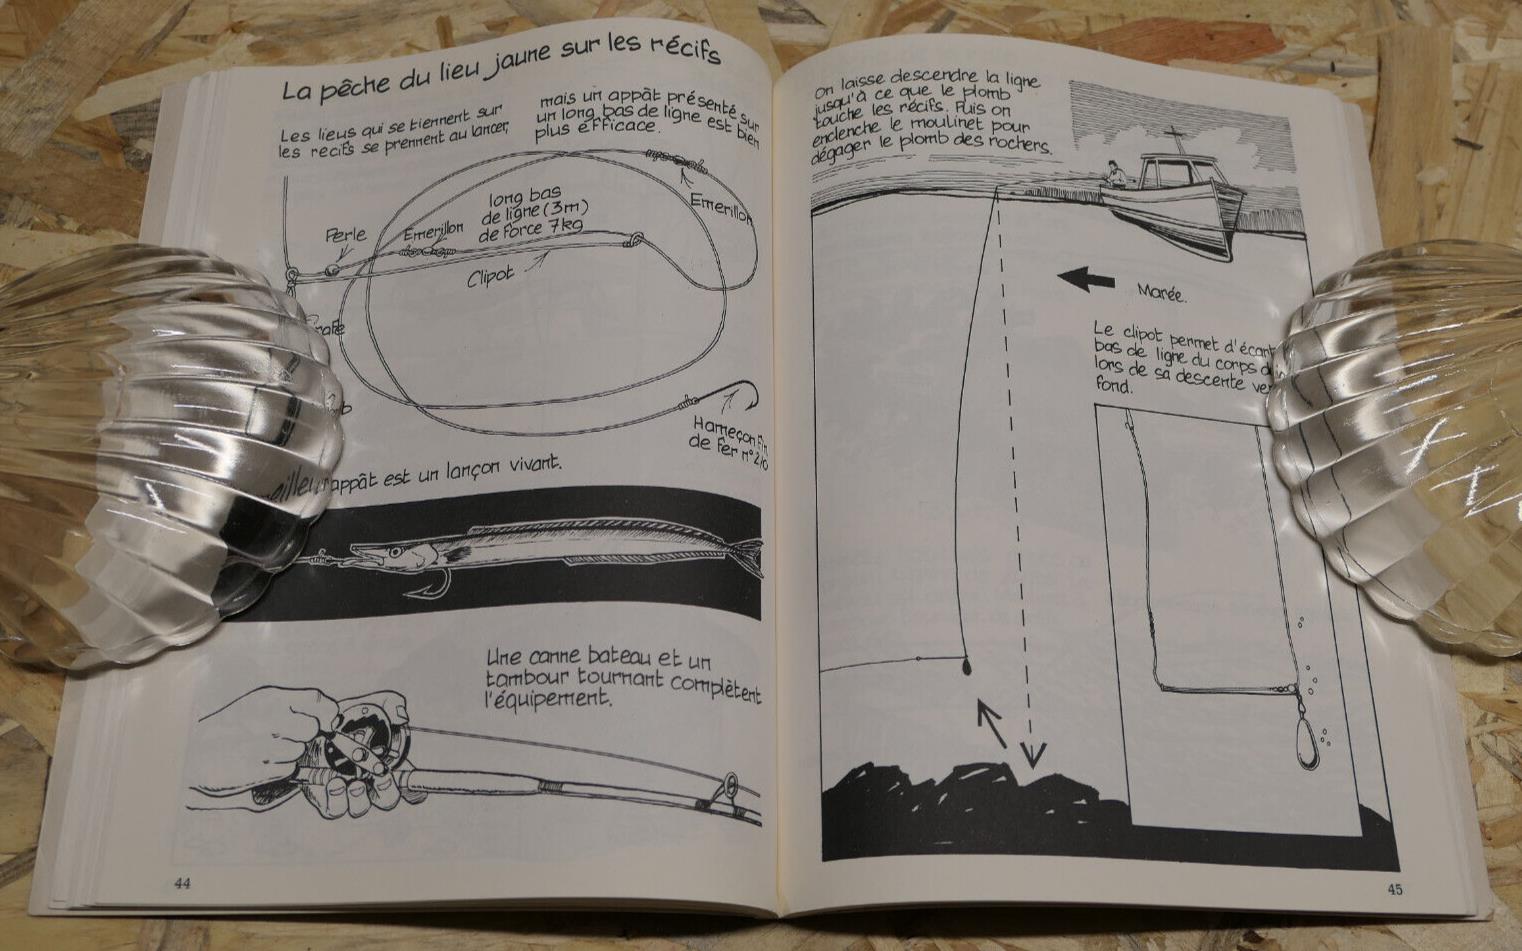 La pêche du lieu jaune sur les récifs
Les lieus qui se tiennent sur
les recifs se prennent au lancer,
mais un appât présenté sur
un long bas de ligne est bien
plus efficace.
Emerillon
long bas
de ligne (3m)
de force 7kg
Perle
Emerillon
Clipot
Hameçon fin
de fer n° 2/0
appât est un lançon vivant.
Une canne bateau et un
tambour tournant complètent
l'équipement.
44
On laisse descendre la ligne
jusqu'à ce que le plomb
touche les récifs. Puis on
enclenche le moulinet pour
dégager le plomb des rochers.
Marée.
Le clipot permet d'écart
bas de ligne du corps d
lors de sa descente ve
fond.
45